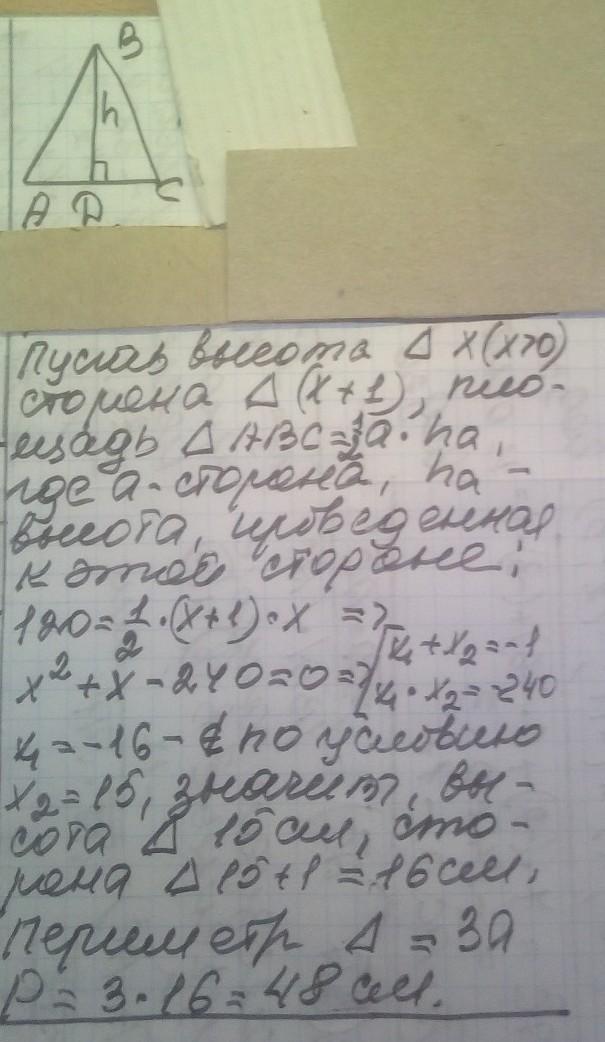 B
h
A D C
Пусть высота Δ x(x>0)
сторона Δ (x+1), пло-
щадь Δ ABC = 1/2 a · ha,
где a - сторона, ha -
высота, проведенная
к этой стороне;
120 = 1/2 · (x+1) · x =>
x² + x - 240 = 0 => { x₁ + x₂ = -1
x₁ · x₂ = -240
x₁ = -16 - ∉ по условию
x₂ = 15, значит, вы-
сота Δ 15 см, сто-
рона Δ 15+1 = 16 см.
Периметр Δ = 3a
P = 3 · 16 = 48 см.